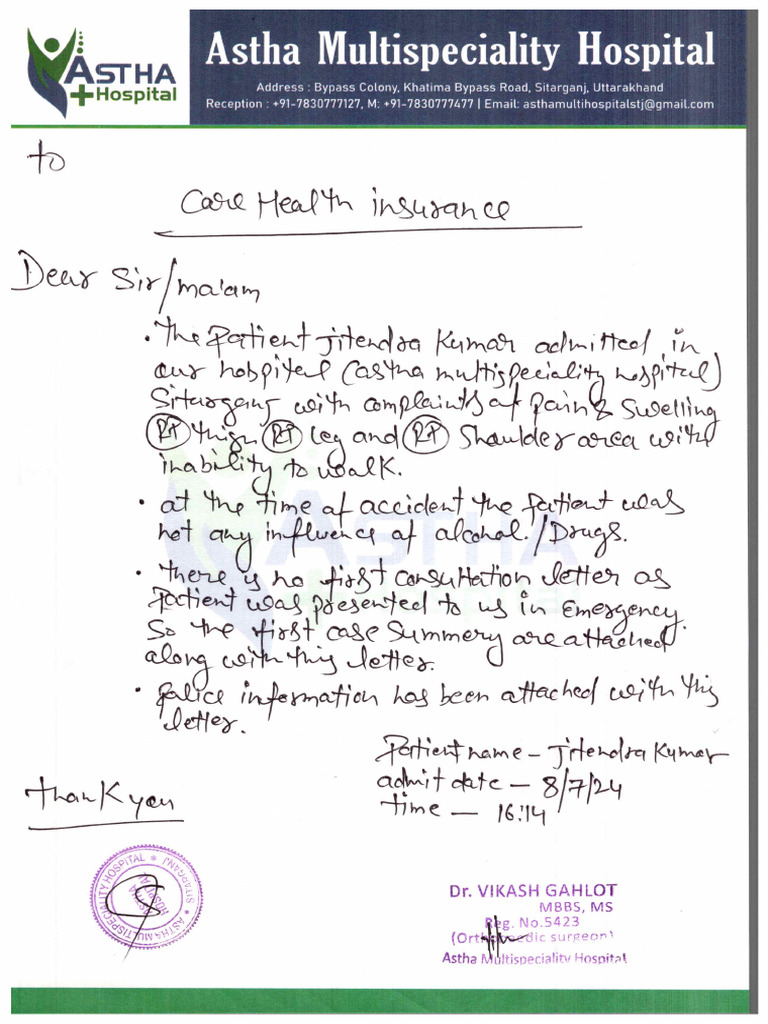 ASTHA
Hospital
Astha Multispeciality Hospital
Address : Bypass Colony, Khatima Bypass Road, Sitarganj, Uttarakhand
Reception : +91-7830777127, M: +91-7830777477 | Email: asthamultihospitalstj@gmail.com
to
Care Health insurance
Dear Sir/ma'am
• The Patient Jitendra Kumar admitted in
our hospital (astha multispeciality hospital)
Sitarganj with complaints of pain & Swelling
RT thigh RT leg and RT Shoulder area with
inability to walk.
• at the time of accident the patient was
not any influence of alcohol./Drugs.
• there is no first consultation letter as
Patient was presented to us in Emergency.
So the first case Summery are attached
along with this letter.
• Police information has been attached with this
letter.
Patient name - Jitendra Kumar
admit date - 8/7/24
time - 16:14
thank you
ASTHA MULTISPECIALITY HOSPITAL * SITARGANJ *
ASTHA
Dr. VIKASH GAHLOT
MBBS, MS
Reg. No.5423
(Orthopaedic surgeon)
Astha Multispeciality Hospital